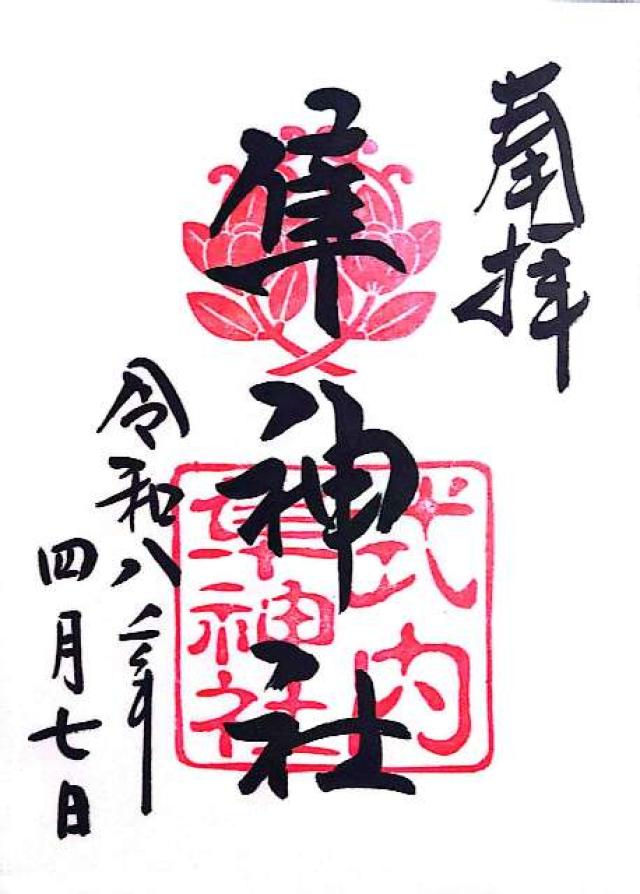 奉拝
隼神社
式内
隼神社
令和八年
四月七日